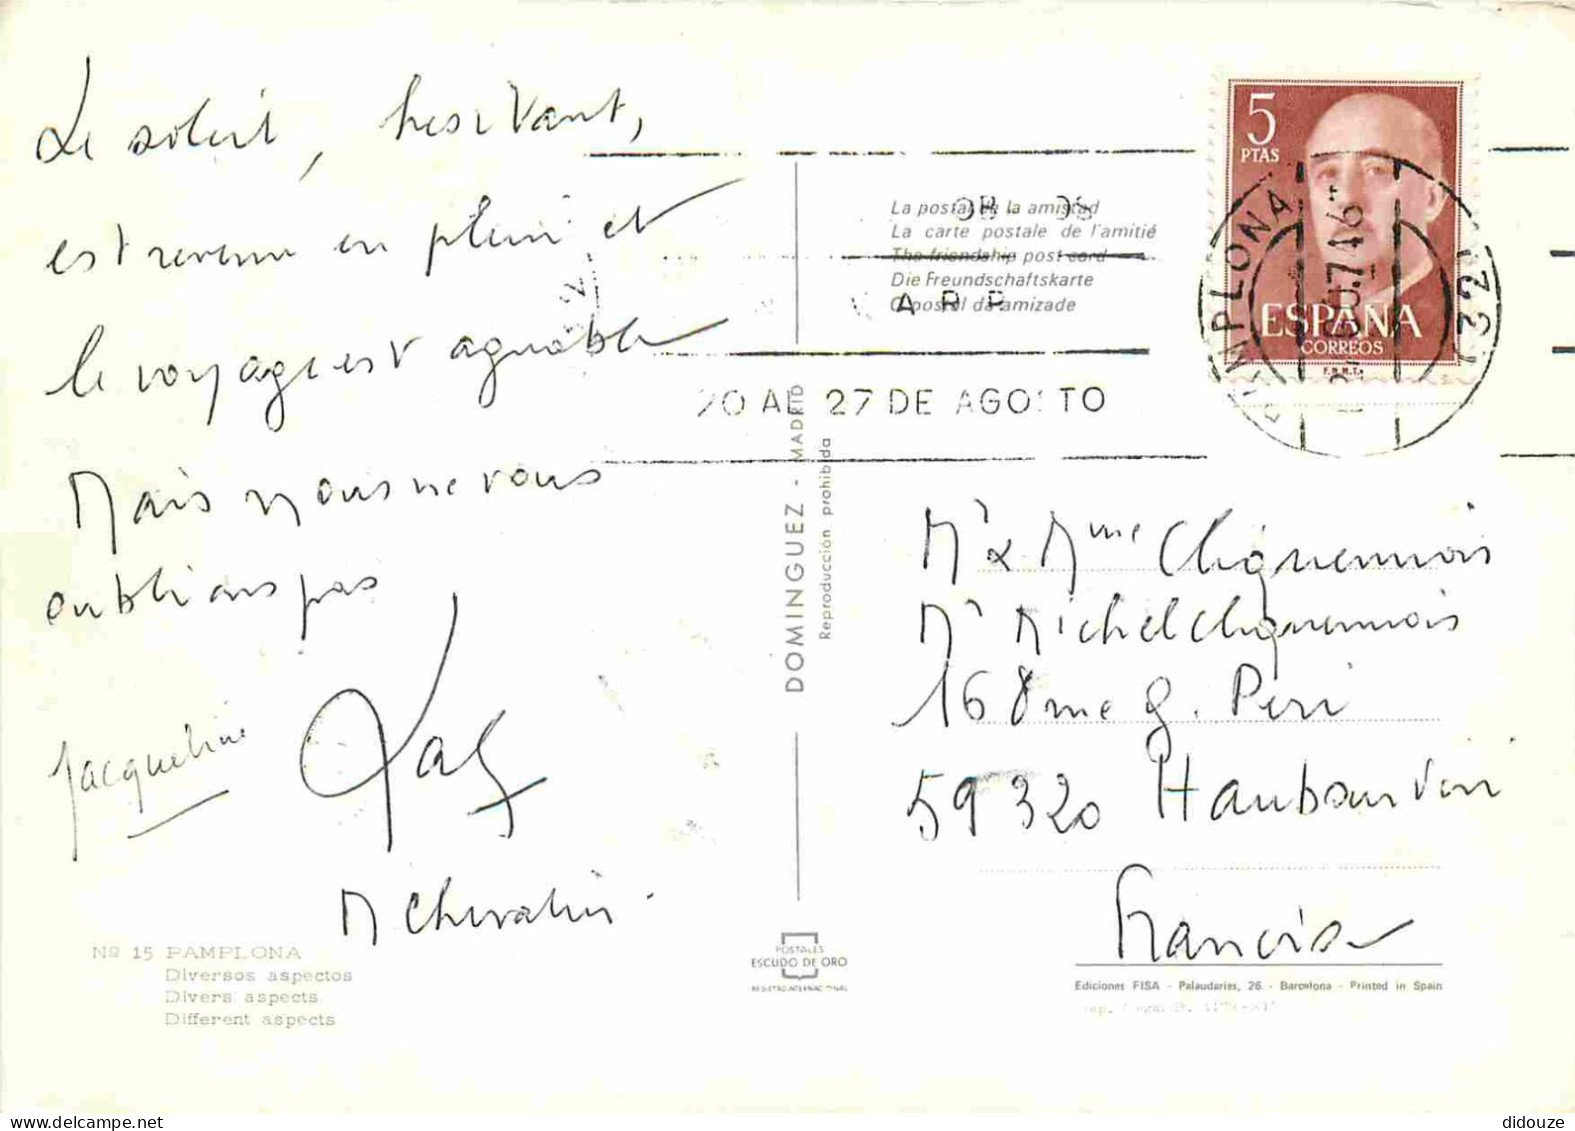 Le soleil, hésitant,
est revenu en plein et
le voyage est agréable
Mais nous ne vous
oublions pas
Jacqueline
M Chevalier
Nº 15 PAMPLONA
Diversos aspectos
Divers aspects
Different aspects
DOMINGUEZ - MADRID
Reproducción prohibida
POSTALES
ESCUDO DE ORO
REGISTRO INTERNACIONAL
La postal de la amistad
La carte postale de l'amitié
The friendship post card
Die Freundschaftskarte
O postal da amizade
20 AL 27 DE AGOSTO
5
PTAS
ESPAÑA
CORREOS
F.N.M.T.
PAMPLONA
Mr & Mme Chiquennois
Mr Michel Chiquennois
168 rue G. Péri
59320 Haubourdin
Francia
Ediciones FISA - Palaudarias, 26 - Barcelona - Printed in Spain
didouze